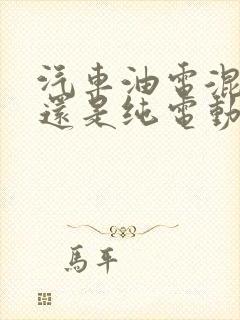 汽車油電混
還是纯電動
馬平